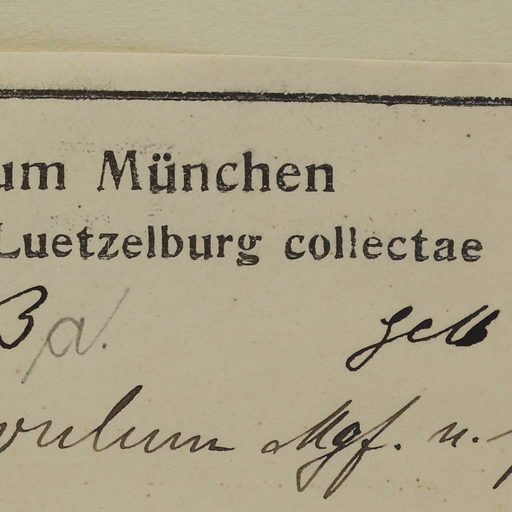 um München
Luetzelburg collectae
3 a. gelb
orulum Mgf. u.